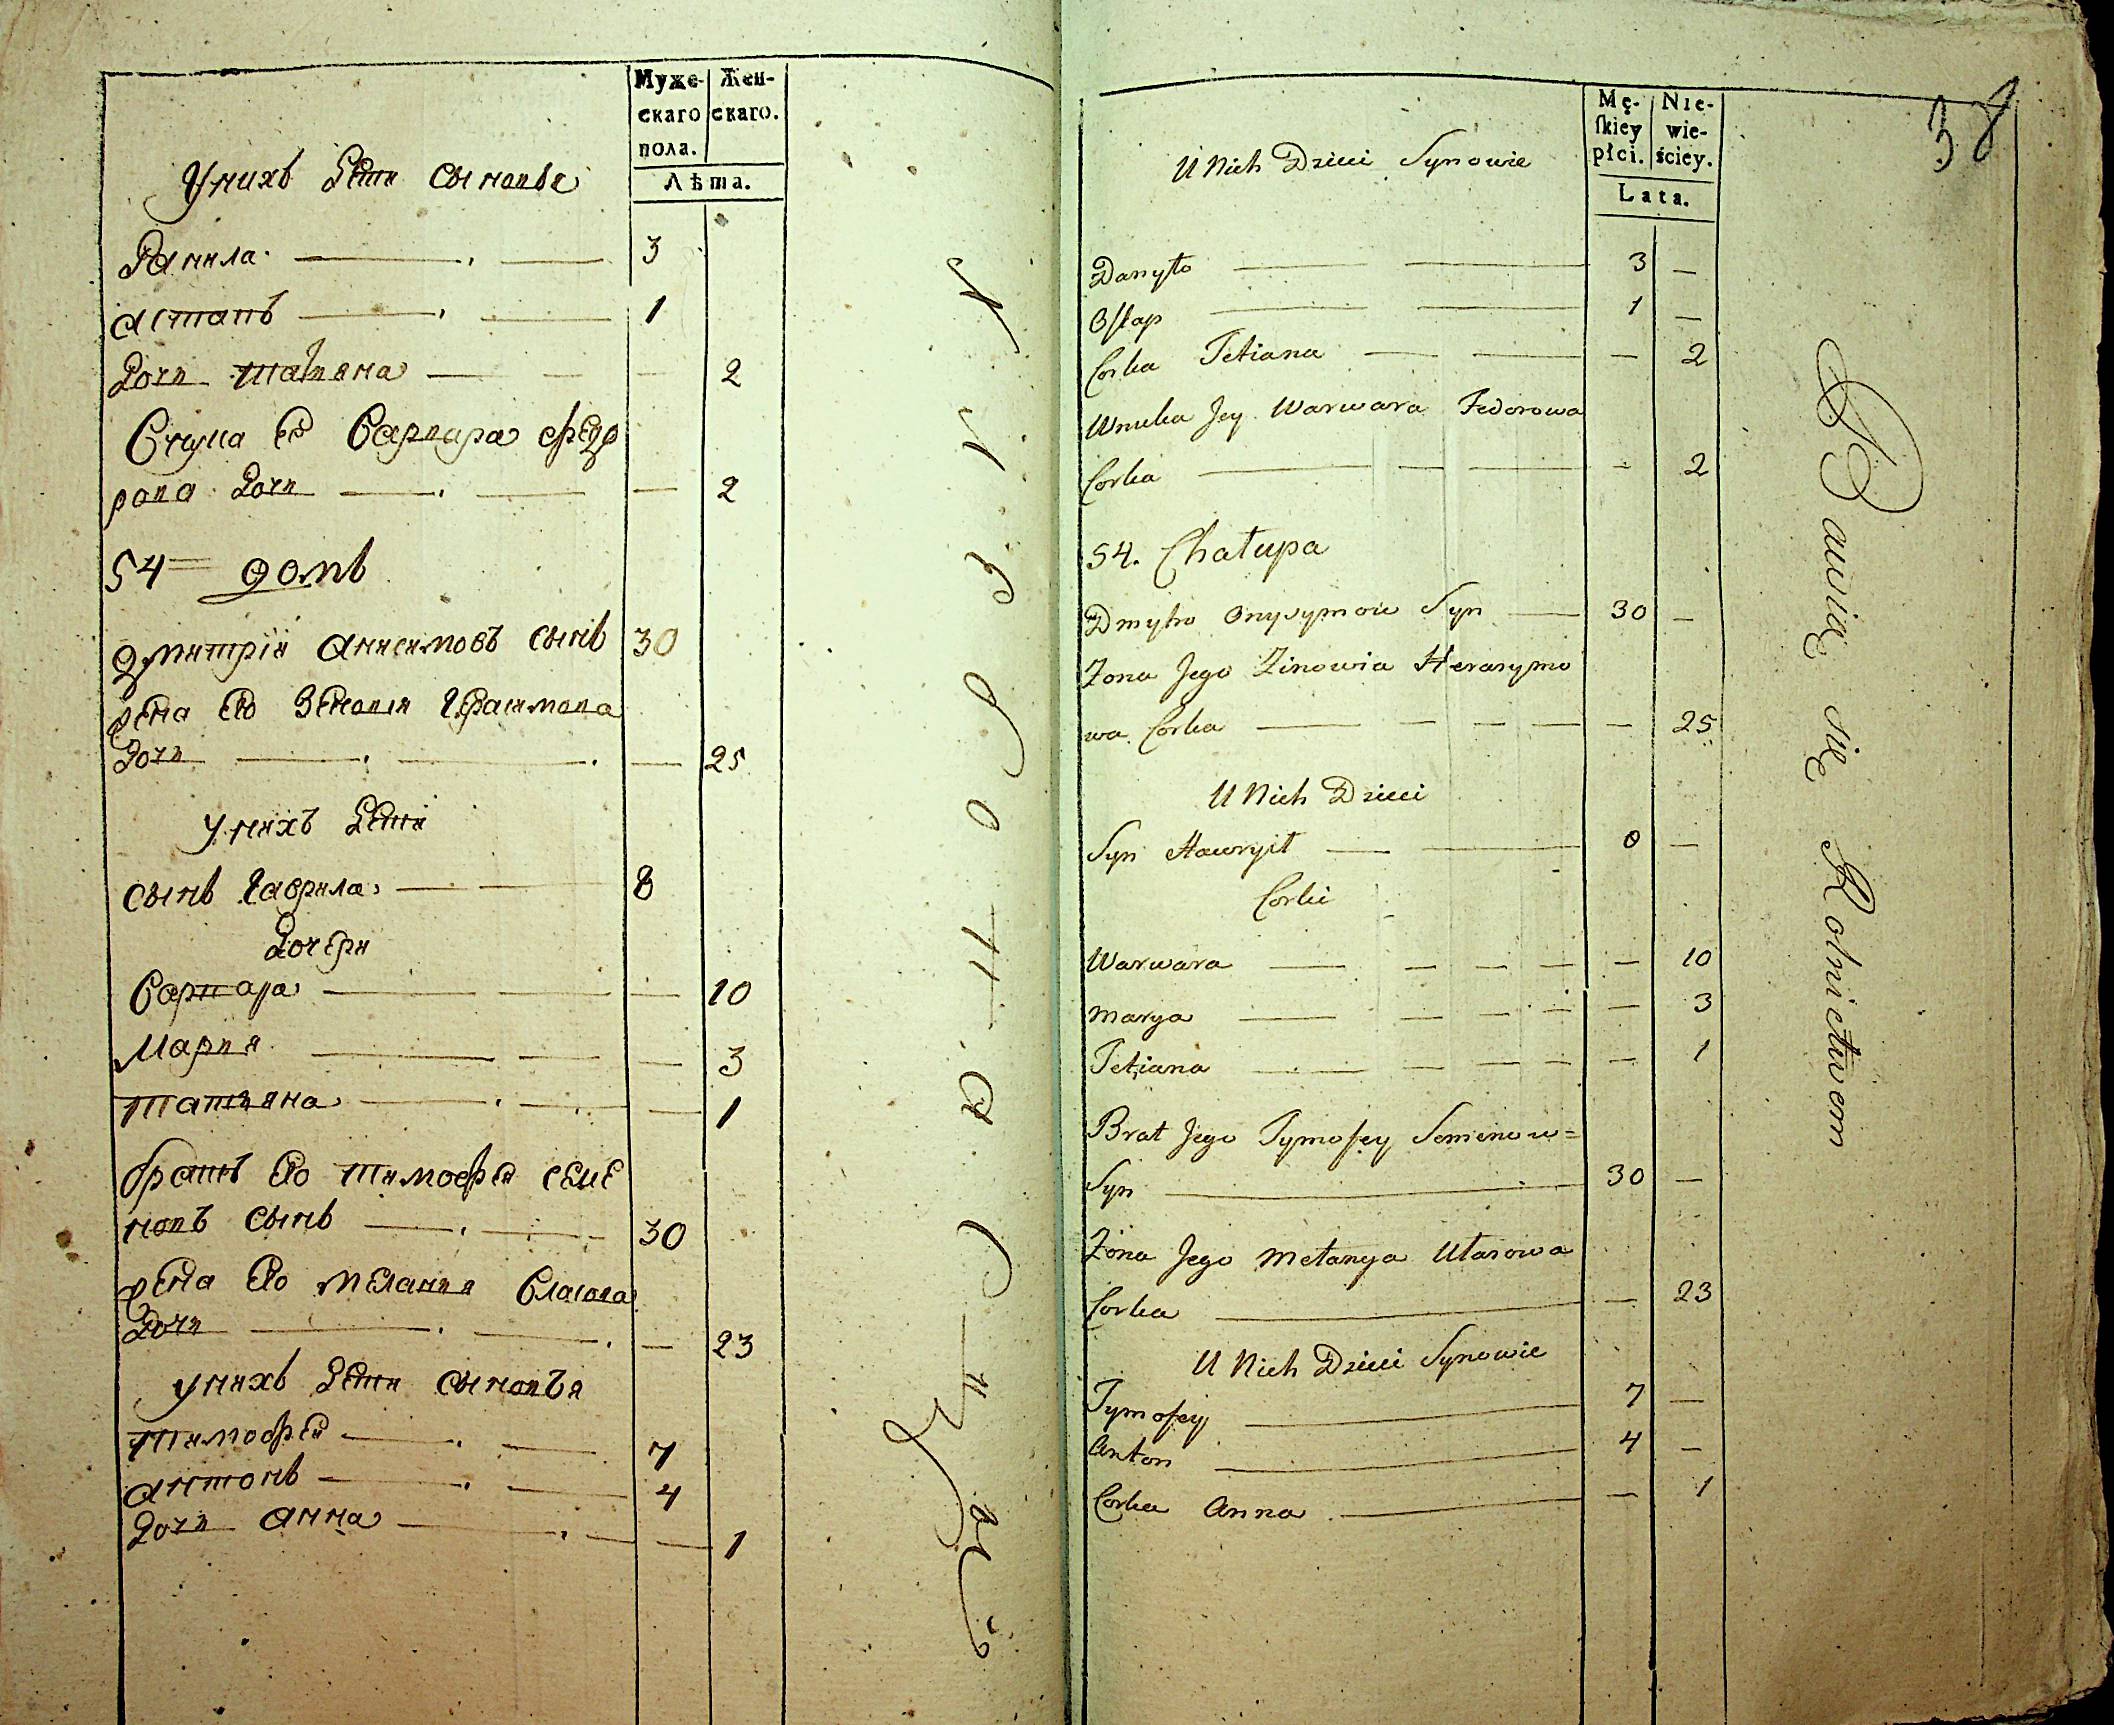 Муже- Жен-
скаго скаго.
пола.
Лѣта.
У нихъ дети сыновье
Данила 3
Астапъ 1
Дочь татьяна — 2
Внука еѣ Варвара федо
рова дочь — 2
54 домъ
Дмитрій анисимовъ сынъ 30
жена его Зеновія Герасимова
Дочь — 25
У нихъ дети
сынъ Гаврила 8
Дочери
Варвара — 10
Мария — 3
татьяна — 1
братъ его тимофей семе
новъ сынъ 30
жена его мелания Власова
Дочь — 23
У нихъ дети сыновья
тимофей 7
антонъ 4
Дочь анна — 1
38
Mę- Nie-
ſkiey wie-
płci. ściey.
Lata.
U Nich Dzieci Synowie
Danyło 3 —
Oſtap 1 —
Corka Tetiana — 2
Wnuka Jey Warwara Fedorowa
Corka — 2
54. Chałupa
Dmytro Onysymow Syn 30 —
Zona Jego Zinowia Herasymo
wa Corka — 25
U Nich Dzieci
Syn Hawryił 8 —
Corki
Warwara — 10
Marya — 3
Tetiana — 1
Brat Jego Tymofey Semenow=
Syn 30 —
Żona Jego Mełanya Własowa
Corka — 23
U Nich Dzieci Synowie
Tymofey 7 —
Anton 4 —
Corka Anna — 1
Bawią się Rolnictwem